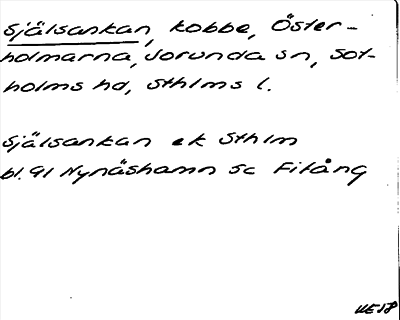 Själsankan, kobbe, Öster-
holmarna, Sorunda sn, Sot-
holms hd, Sthlms l.
Själsankan ek Sthlm
bl. 91 Nynäshamn sc Fifång